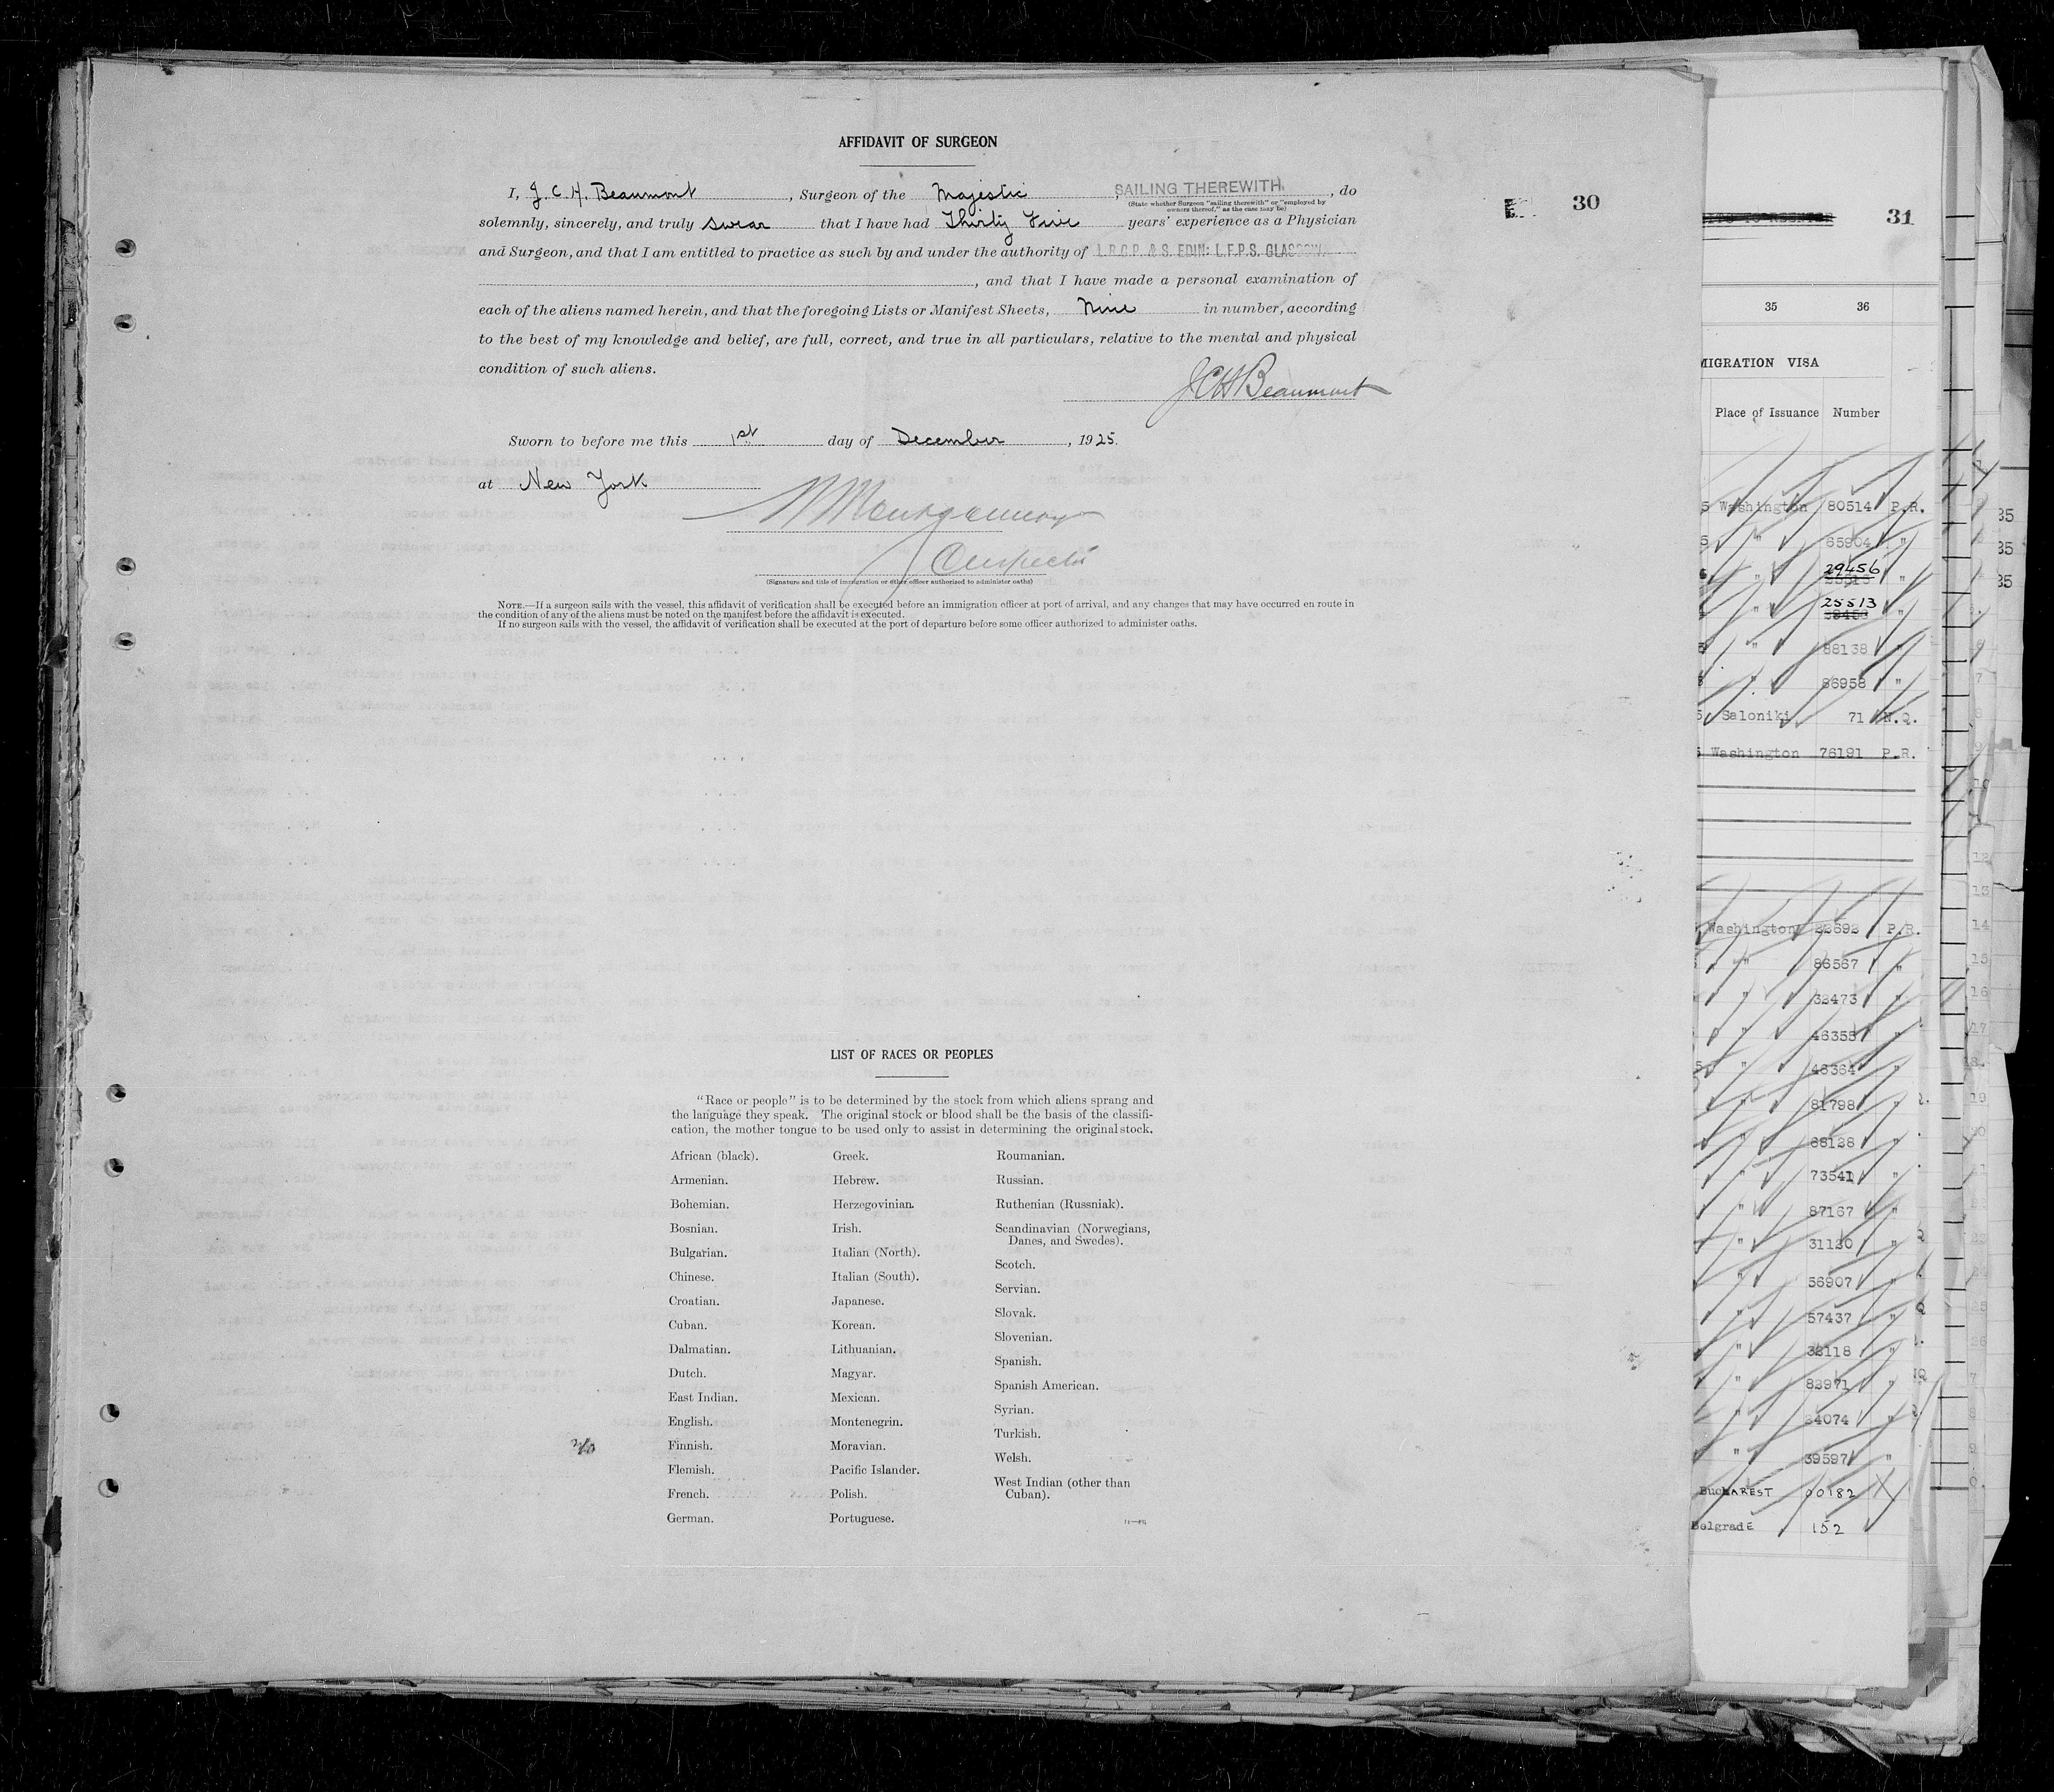 AFFIDAVIT OF SURGEON
I, J. C. H. Beaumont, Surgeon of the Majestic, SAILING THEREWITH, do
(State whether Surgeon "sailing therewith" or "employed by
owners thereof," as the case may be)
solemnly, sincerely, and truly swear that I have had Thirty Five years' experience as a Physician
and Surgeon, and that I am entitled to practice as such by and under the authority of L.R.C.P. & S. EDIN: L.F.P.S. GLASGOW.
, and that I have made a personal examination of
each of the aliens named herein, and that the foregoing Lists or Manifest Sheets, Nine in number, according
to the best of my knowledge and belief, are full, correct, and true in all particulars, relative to the mental and physical
condition of such aliens.
JCHBeaumont
Sworn to before me this 1st day of December, 1925.
at New York
(Signature and title of immigration or other officer authorized to administer oaths)
NOTE.—If a surgeon sails with the vessel, this affidavit of verification shall be executed before an immigration officer at port of arrival, and any changes that may have occurred en route in
the condition of any of the aliens must be noted on the manifest before the affidavit is executed.
If no surgeon sails with the vessel, the affidavit of verification shall be executed at the port of departure before some officer authorized to administer oaths.
30
LIST OF RACES OR PEOPLES
"Race or people" is to be determined by the stock from which aliens sprang and
the language they speak. The original stock or blood shall be the basis of the classifi-
cation, the mother tongue to be used only to assist in determining the original stock.
African (black).
Armenian.
Bohemian.
Bosnian.
Bulgarian.
Chinese.
Croatian.
Cuban.
Dalmatian.
Dutch.
East Indian.
English.
Finnish.
Flemish.
French.
German.
Greek.
Hebrew.
Herzegovinian.
Irish.
Italian (North).
Italian (South).
Japanese.
Korean.
Lithuanian.
Magyar.
Mexican.
Montenegrin.
Moravian.
Pacific Islander.
Polish.
Portuguese.
Roumanian.
Russian.
Ruthenian (Russniak).
Scandinavian (Norwegians,
Danes, and Swedes).
Scotch.
Servian.
Slovak.
Slovenian.
Spanish.
Spanish American.
Syrian.
Turkish.
Welsh.
West Indian (other than
Cuban).
31
35 36
MIGRATION VISA
Place of Issuance Number
Washington 80514 P.R.
" 65904 "
" 29456 "
" 25513
" 88138 "
" 86958 "
Saloniki 71 N.Q.
Washington 76191 P.R.
Washington 22692 P.R.
" 86567 "
" 32473 "
" 46355 "
" 46364 "
" 81798 "
" 68128 "
" 73541 "
" 87167 "
" 31120 "
" 56907 "
" 57437 "
" 32118 "
" 83971 "
" 84074 "
" 39597 "
BUCHAREST 00182
Belgrade 152